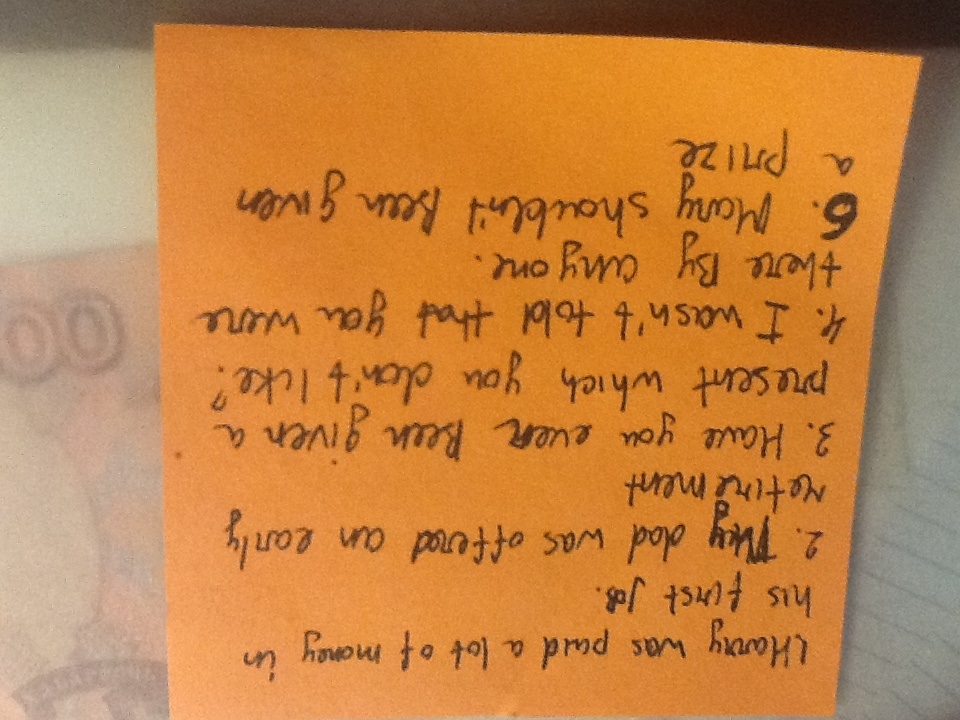 1Harry was paid a lot of money in
his first job.
2. My dad was offered an early
retirement
3. Have you ever Been given a
present which you don't like?
4. I wasn't told that you were
there By anyone.
5. Mary shouldn't Been given
a prize
00